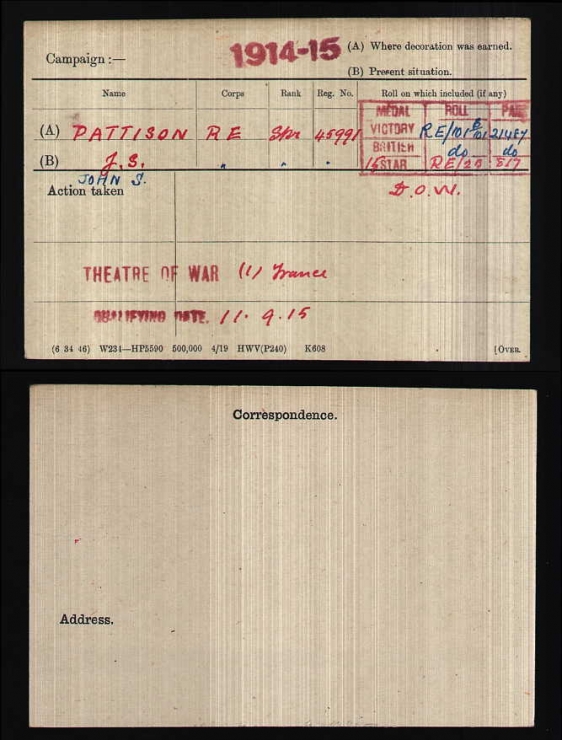 Campaign :— 1914-15 (A) Where decoration was earned.
(B) Present situation.
Name Corps Rank Reg. No. Roll on which included (if any)
MEDAL ROLL PAGE
(A) PATTISON R E Spr 45991 VICTORY RE/101 21487
(B) J.S. " " " BRITISH do do
JOHN S. 15 STAR RE/20 517
Action taken D.O.W.
THEATRE OF WAR (1) France
QUALIFYING DATE. 11.9.15
(6 34 46) W234—HP5590 500,000 4/19 HWV(P240) K608 [OVER.
Correspondence.
Address.